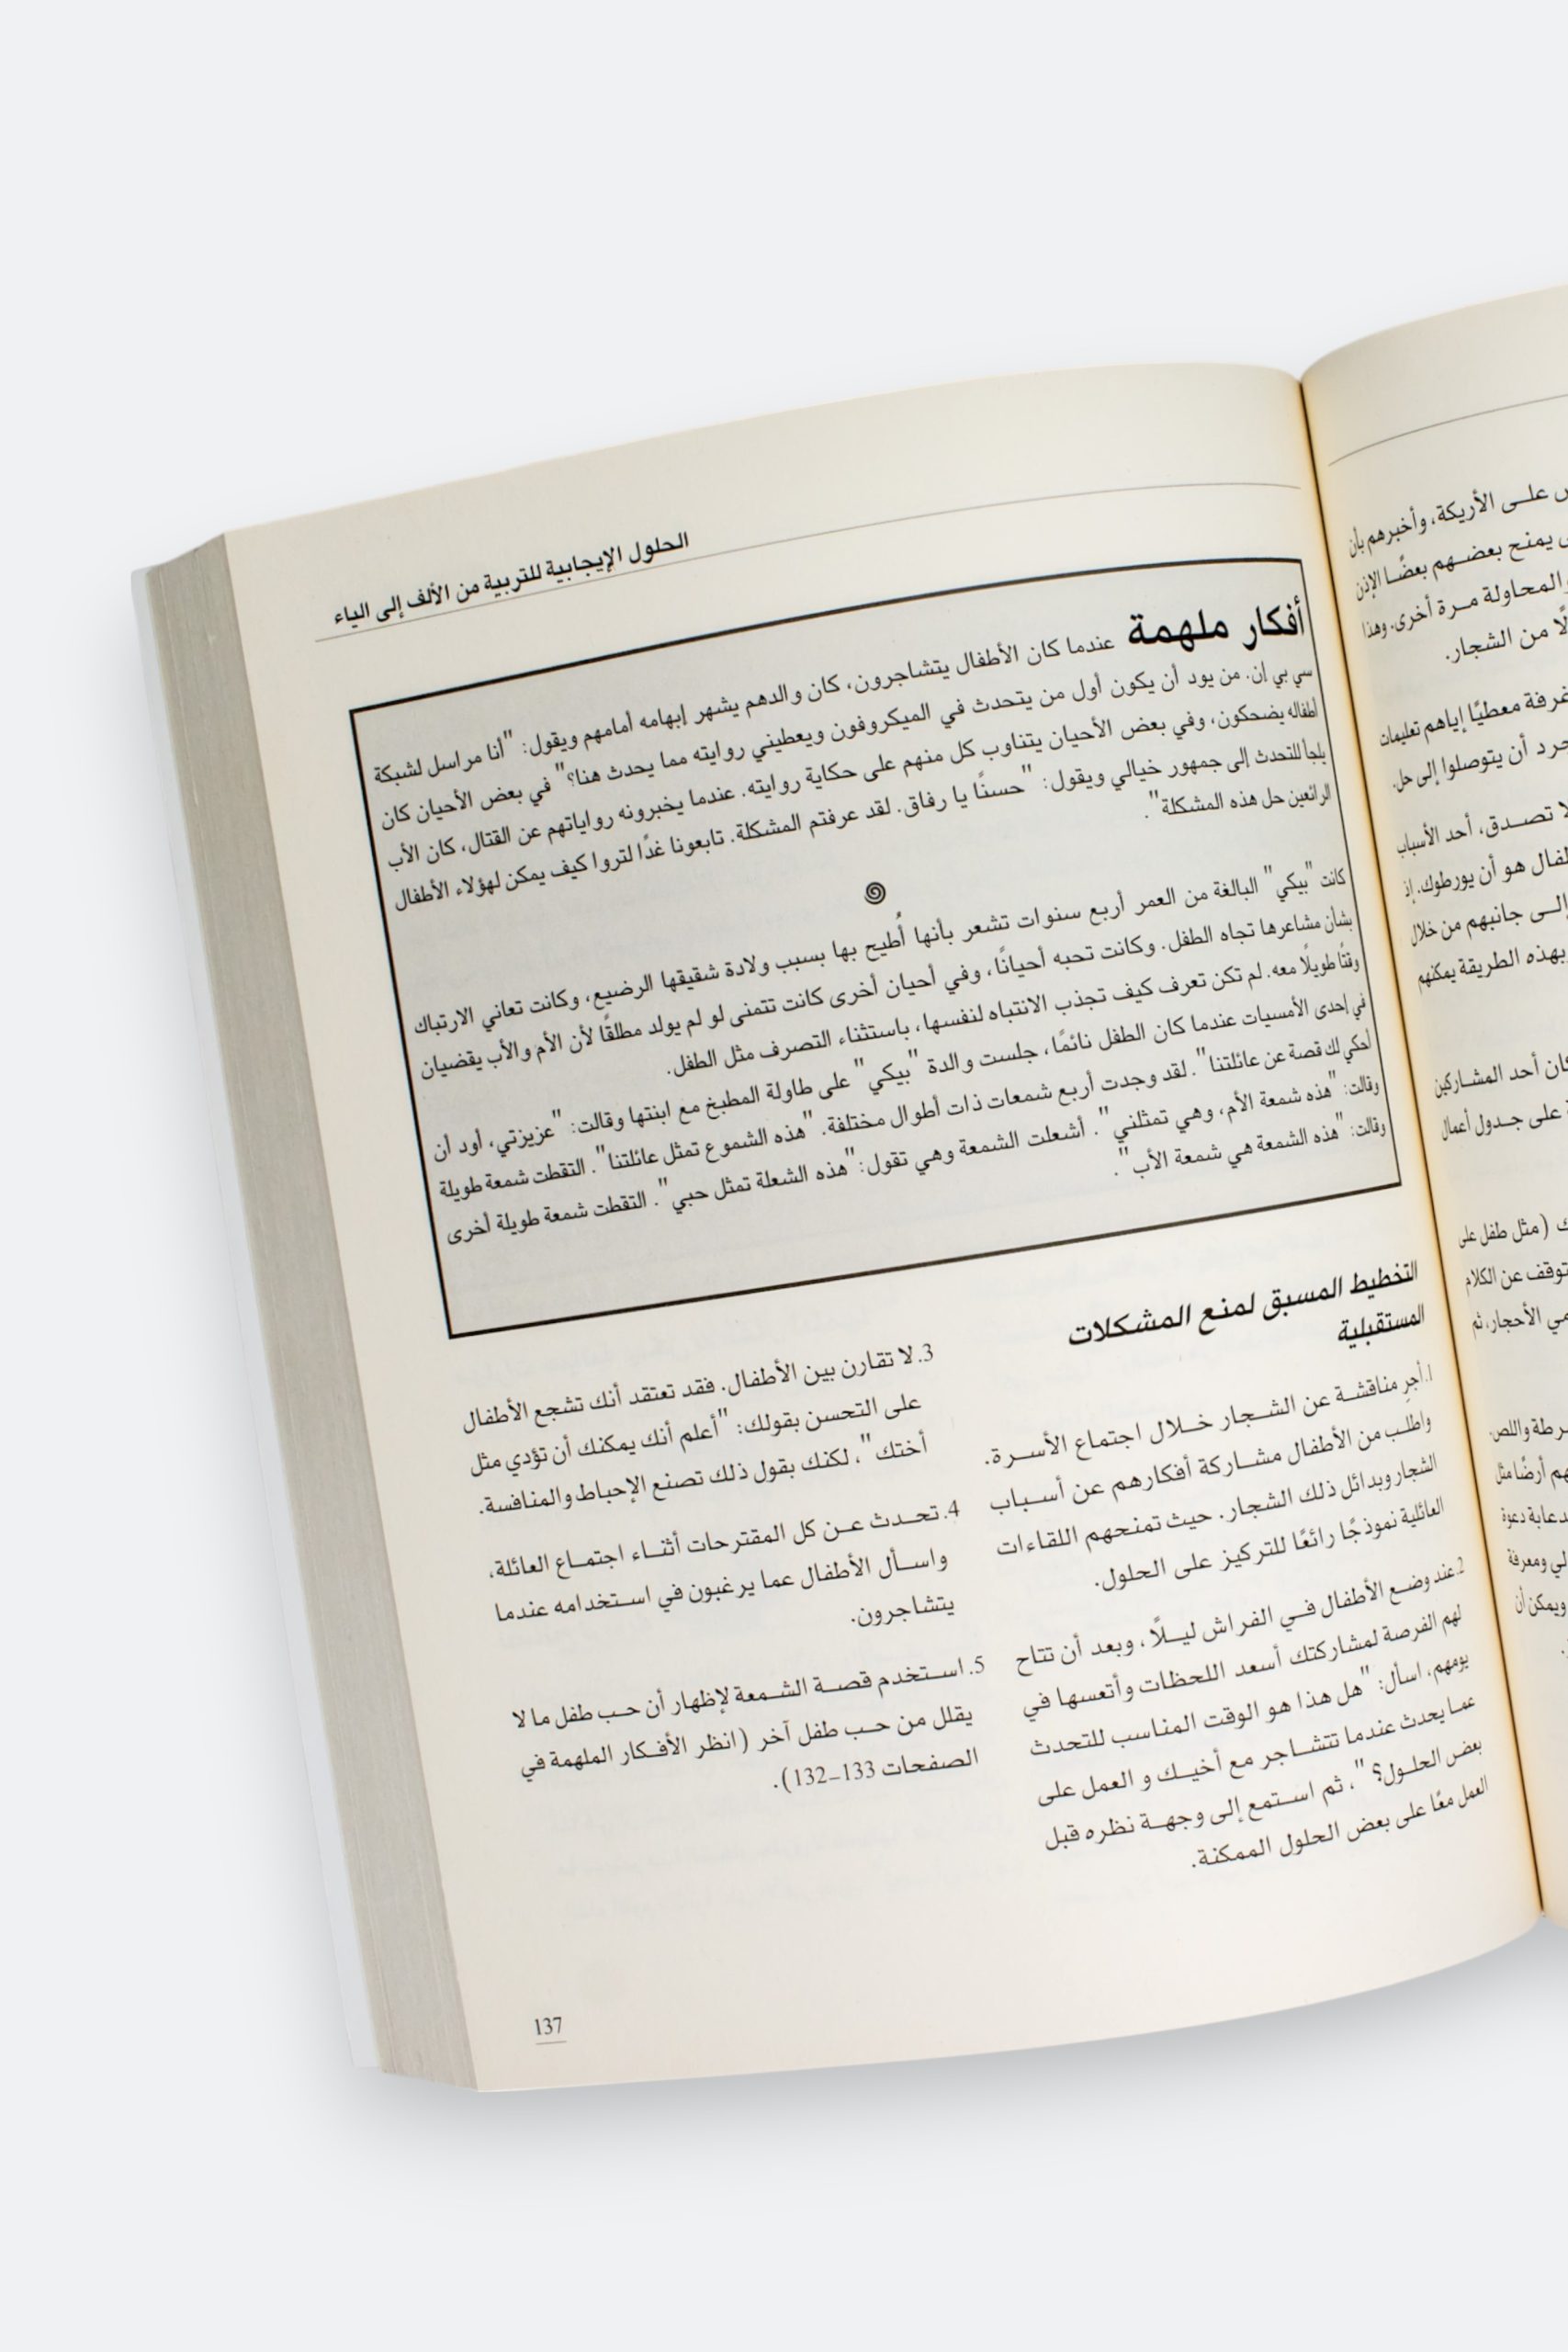 على الأريكة، وأخبرهم بأن
يمنح بعضهم بعضًا الإذن
والمحاولة مرة أخرى. وهذا
من الشجار.
غرفة معطيًا إياهم تعليمات
أن يتوصلوا إلى حل.
لا تصدق، أحد الأسباب
هو أن يورطوك. إذ
إلى جانبهم من خلال
بهذه الطريقة يمكنهم
كان أحد المشاركين
على جدول أعمال
(مثل طفل على
توقف عن الكلام
الأحجار، ثم
واللص.
أرضًا مثل
دعابة دعوة
ومعرفة
ويمكن أن
الحلول الإيجابية للتربية من الألف إلى الياء
أفكار ملهمة عندما كان الأطفال يتشاجرون، كان والدهم يشهر إبهامه أمامهم ويقول: "أنا مراسل لشبكة
سي بي إن. من يود أن يكون أول من يتحدث في الميكروفون ويعطيني روايته مما يحدث هنا؟" في بعض الأحيان كان
أطفاله يضحكون، وفي بعض الأحيان يتناوب كل منهم على حكاية روايته. عندما يخبرونه رواياتهم عن القتال، كان الأب
يلجأ للتحدث إلى جمهور خيالي ويقول: "حسنًا يا رفاق. لقد عرفتم المشكلة. تابعونا غدًا لتروا كيف يمكن لهؤلاء الأطفال
الرائعين حل هذه المشكلة".
كانت "بيكي" البالغة من العمر أربع سنوات تشعر بأنها أُطيح بها بسبب ولادة شقيقها الرضيع، وكانت تعاني الارتباك
بشأن مشاعرها تجاه الطفل. وكانت تحبه أحيانًا، وفي أحيان أخرى كانت تتمنى لو لم يولد مطلقًا لأن الأم والأب يقضيان
وقتًا طويلًا معه. لم تكن تعرف كيف تجذب الانتباه لنفسها، باستثناء التصرف مثل الطفل.
في إحدى الأمسيات عندما كان الطفل نائمًا، جلست والدة "بيكي" على طاولة المطبخ مع ابنتها وقالت: "عزيزتي، أود أن
أحكي لك قصة عن عائلتنا". لقد وجدت أربع شمعات ذات أطوال مختلفة. "هذه الشموع تمثل عائلتنا". التقطت شمعة طويلة
وقالت: "هذه شمعة الأم، وهي تمثلني". أشعلت الشمعة وهي تقول: "هذه الشعلة تمثل حبي". التقطت شمعة طويلة أخرى
وقالت: "هذه الشمعة هي شمعة الأب".
التخطيط المسبق لمنع المشكلات
المستقبلية
1. أجرِ مناقشة عن الشجار خلال اجتماع الأسرة.
واطلب من الأطفال مشاركة أفكارهم عن أسباب
الشجار وبدائل ذلك الشجار. حيث تمنحهم اللقاءات
العائلية نموذجًا رائعًا للتركيز على الحلول.
2. عند وضع الأطفال في الفراش ليلًا، وبعد أن تتاح
لهم الفرصة لمشاركتك أسعد اللحظات وأتعسها في
يومهم، اسأل: "هل هذا هو الوقت المناسب للتحدث
عما يحدث عندما تتشاجر مع أخيك و العمل على
بعض الحلول؟ "، ثم استمع إلى وجهة نظره قبل
العمل معًا على بعض الحلول الممكنة.
3. لا تقارن بين الأطفال. فقد تعتقد أنك تشجع الأطفال
على التحسن بقولك: "أعلم أنك يمكنك أن تؤدي مثل
أختك"، لكنك بقول ذلك تصنع الإحباط والمنافسة.
4. تحدث عن كل المقترحات أثناء اجتماع العائلة،
واسأل الأطفال عما يرغبون في استخدامه عندما
يتشاجرون.
5. استخدم قصة الشمعة لإظهار أن حب طفل ما لا
يقلل من حب طفل آخر (انظر الأفكار الملهمة في
الصفحات 133-132).
137